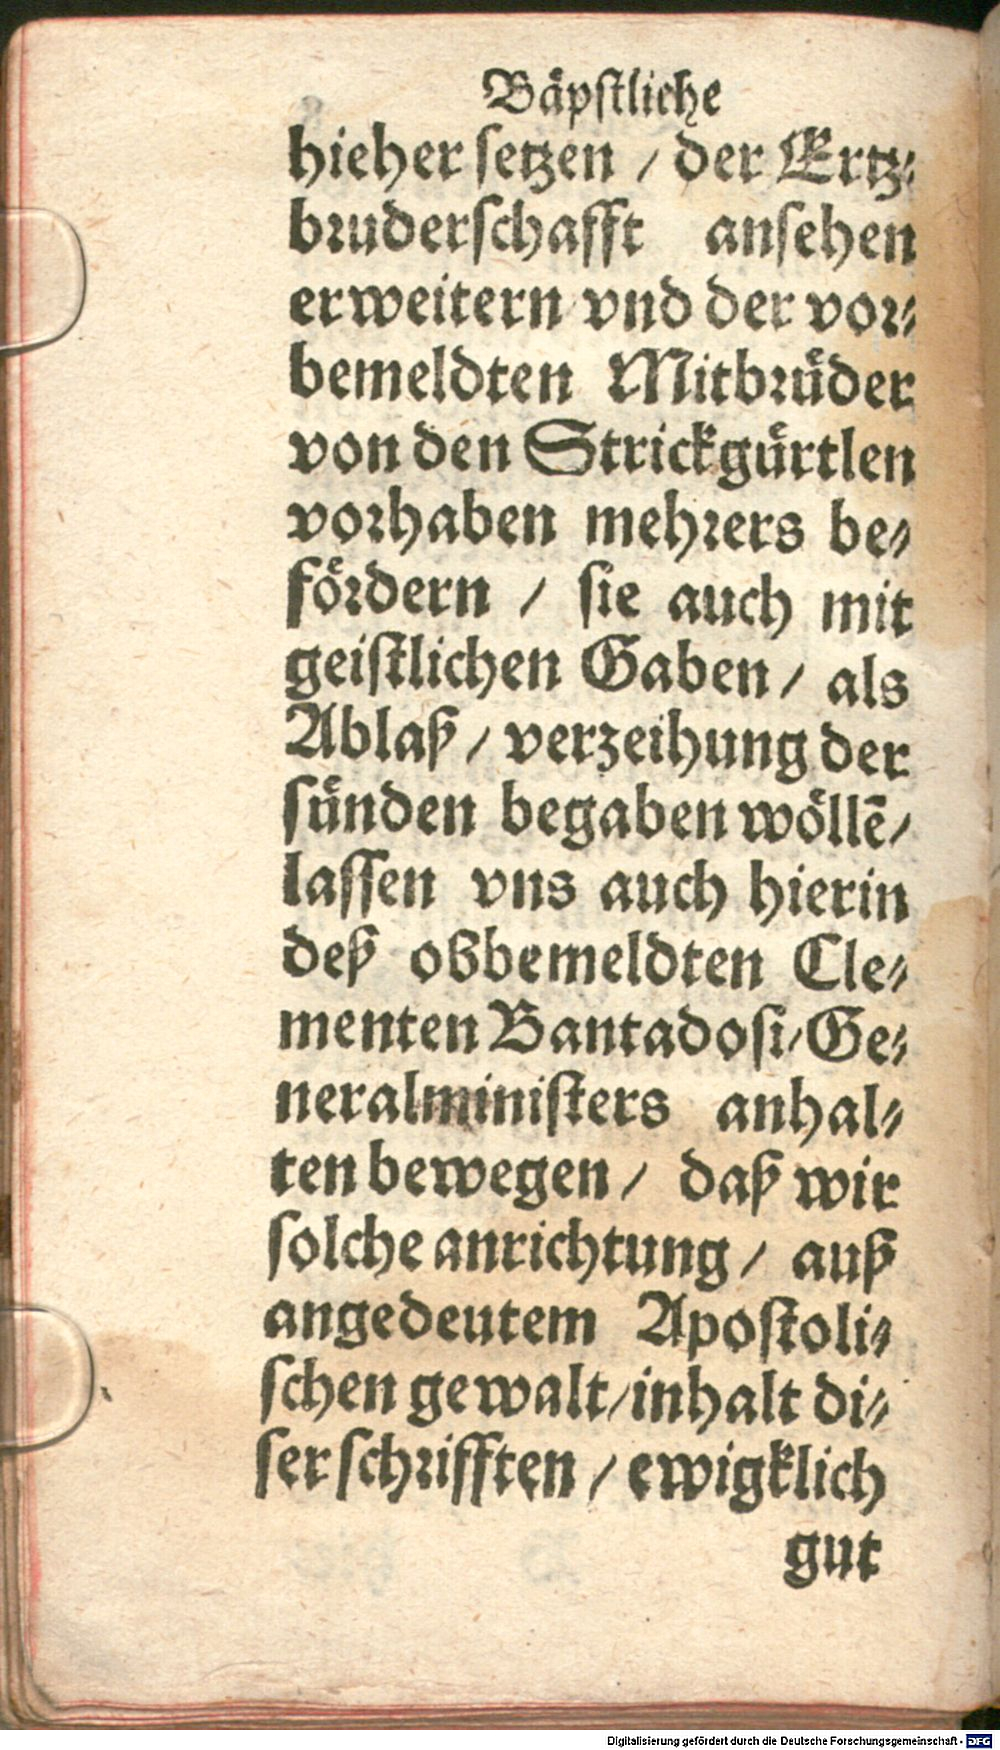 Bäpstliche
hieher setzen / der Ertz-
bruderschafft ansehen
erweitern vnd der vor-
bemeldten Mitbrüder
von den Strickgürtlen
vorhaben mehrers be-
fördern / sie auch mit
geistlichen Gaben / als
Ablaß / verzeihung der
sünden begaben wöllẽ /
lassen vns auch hierin
deß obbemeldten Cle-
menten Bantadosi / Ge-
neralministers anhal-
ten bewegen / daß wir
solche anrichtung / auß
angedeutem Apostoli-
schen gewalt / inhalt di-
ser schrifften / ewigklich
gut
Digitalisierung gefördert durch die Deutsche Forschungsgemeinschaft - DFG